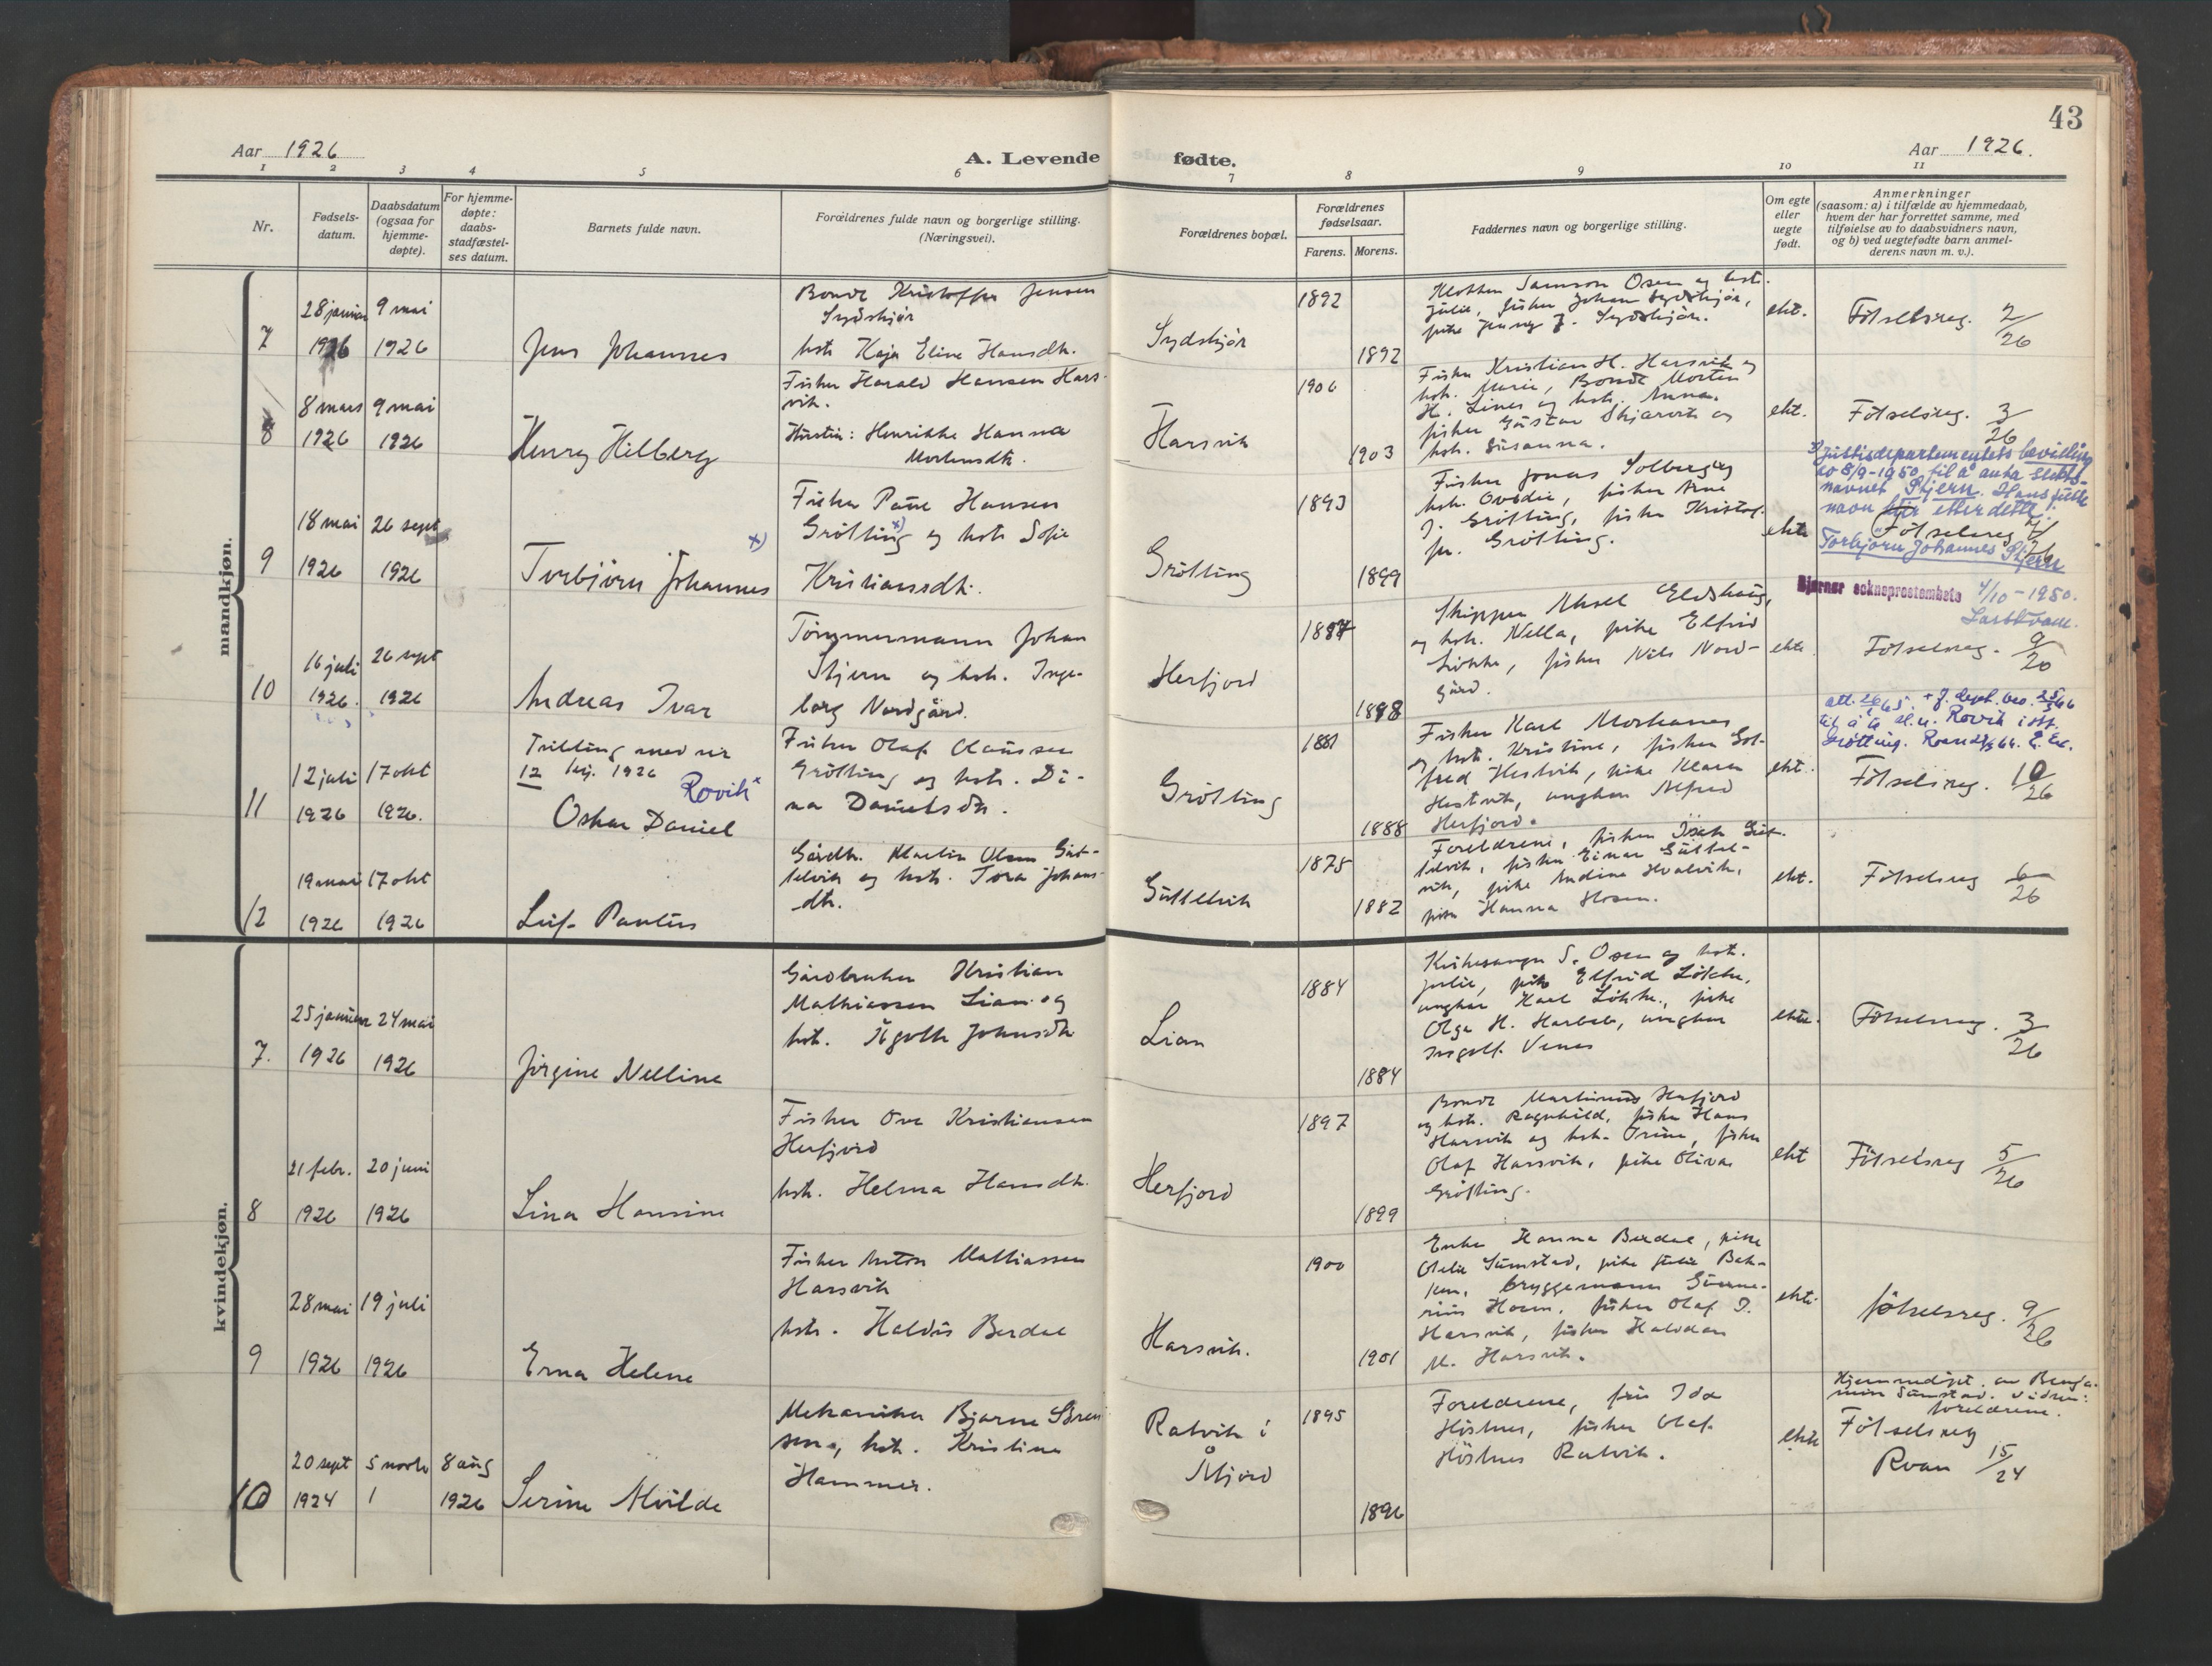 43
Aar 1926
A. Levende fødte.
Aar 1926.
1 2 3 4 5 6 7 8 9 10 11
Nr.
Fødsels-
datum.
Daabsdatum
(ogsaa for
hjemme-
døpte).
For hjemme-
døpte:
daabs-
stadfæstel-
ses datum.
Barnets fulde navn.
Forældrenes fulde navn og borgerlige stilling.
(Næringsvei).
Forældrenes bopæl.
Forældrenes
fødselsaar.
Farens. Morens.
Faddernes navn og borgerlige stilling.
Om egte
eller
uegte
født.
Anmerkninger
(saasom: a) i tilfælde av hjemmedaab,
hvem der har forrettet samme, med
tilføielse av to daabsvidners navn,
og b) ved uegtefødte barn anmel-
derens navn m. v.).
mandkjøn.
7
28 januar
1926
9 mai
1926
Jens Johannes
Bonde Kristoffer Jensen
Sydskjör
hstr Kaja Eline Hansdtr.
Sydskjör
1892
1892
Klokker Samson Osen og hstr.
Julie, fisker Johan Sydskjör,
pike Jenny J. Sydskjör.
ekt.
Fötselsreg. 2/26
8
8 mars
1926
9 mai
1926
Henry Hilberg
Fisker Harald Hansen Hars-
vik.
Hustru: Henrikke Hanna
Mortensdtr.
Harsvik
1906
1903
Fisker Kristian H. Harsvik og
hstr. Marie, Bonde Morten
H. Lines og hstr. Anna.
fisker Gustav Skjærvik og
hstr. Susanna.
ekt.
Fötselsreg. 3/26
9
18 mai
1926
26 sept
1926
x)
Torbjörn Johannes
Fisker Paul Hansen
Grötting x) og hstr Sofie
Kristiansdtr.
Grötting
1893
1899
Fisker Jonas Solberg og
hstr. Ovedie, fisker Arne
J. Grötting, fisker Kristof-
fer Grötting.
ekte
x) Justisdepartementets bevilling
av 8/9-1950 til å anta slekts-
navnet Stjern. Hans fulle
navn er etter dette:
Fötselsreg
Torbjørn Johannes Stjern
Bjørnør sokneprestembete 4/10-1950.
10
16 juli
1926.
26 sept
1926
Andreas Ivar
Tömmermann Johan
Stjern og hstr. Inge-
borg Nordgård.
Herfjord
1897
1898
Skipper Aksel Eldshaug,
og hstr. Nella, pike Elfrid
Løkke, fisker Nils Nord-
gård.
ekte.
Fötselsreg. 9/20
11
12 juli
1926
17 okt
1926.
Tvilling med nr
12 1926
Rovik
Oskar Daniel
Fisker Olaf Claussen
Grötting og hstr. Di-
na Danielsdtr.
Grötting
1881
1888
Fisker Karl Morkanes
og hstr. Kristine, fisker Got-
fred Hestvik, pike Klara
Hestvik, ungkar Alfred
Herfjord.
ekt.
til å ta sl.n. Rovik i st.f.
Grøtting.
Fötselsreg. 10/26
12
19 mai
1926
17 okt
1926
Leif Paulus
Gårdbr. Martin Olsen Gut-
telvik og hstr. Tora Johans-
dtr.
Guttelvik
1875
1882
Foreldrene, fisker Isak Gut-
telvik, fisker Einar Guttel-
vik, pike Andine Hvalvik,
pike Hanna Hosen.
ekt.
Fötselsreg 6/26
kvindekjøn.
7.
25 januar
1926
24 mai
1926
Jörgine Nelline
Gårdbruker Kristian
Mathiassen Lian og
hstr. Ågotte Johnsdtr
Lian
1884
1884
Kirkesanger S. Osen og hstr.
Julie, pike Elfrid Løkke,
ungkar Karl Løkke, pike
Olga H. Harbak, ungkar
Ingolf Vines
ekte.
Fötselsreg. 3/26
8
21 febr.
1926
20 juni
1926
Lina Hansine
Fisker Ove Kristiansen
Herfjord
hstr. Helma Hansdtr.
Herfjord
1897
1899
Bonde Martinus Herfjord
og hstr. Ragnhild, fisker Hans
Harsvik og hstr. Trine, fisker
Olaf Harsvik, pike Oliva
Grötting.
ekt
Fötselsreg 5/26
9
28 mai
1926
19 juli
1926
Erna Helene
Fisker Anton Mathiassen
Harsvik
hstr. Haldis Berdal
Harsvik.
1900
1901
Enke Hanna Berdal, pike
Otelie Sumstad, pike Julie Bek-
ken, bryggemann Gunne-
rius Hosen, fisker Olaf I.
Harsvik, fisker Halvdan
M. Harsvik.
ekte.
fötselsreg. 9/26
10
20 sept
1924
5 novbr
1
8 aug
1926
Serine Alvilde
Mekaniker Bjarne Sören-
sen, hstr. Kristine
Hammer.
Ratvik i
Åfjord
1895
1896
Foreldrene, frü Ida
Höstnes, fisker Olaf
Höstnes Ratvik.
ekte
Hjemmedöpt av Benja-
min Sumstad. Vidner:
foreldrene.
Fötselsreg
Roan 15/24